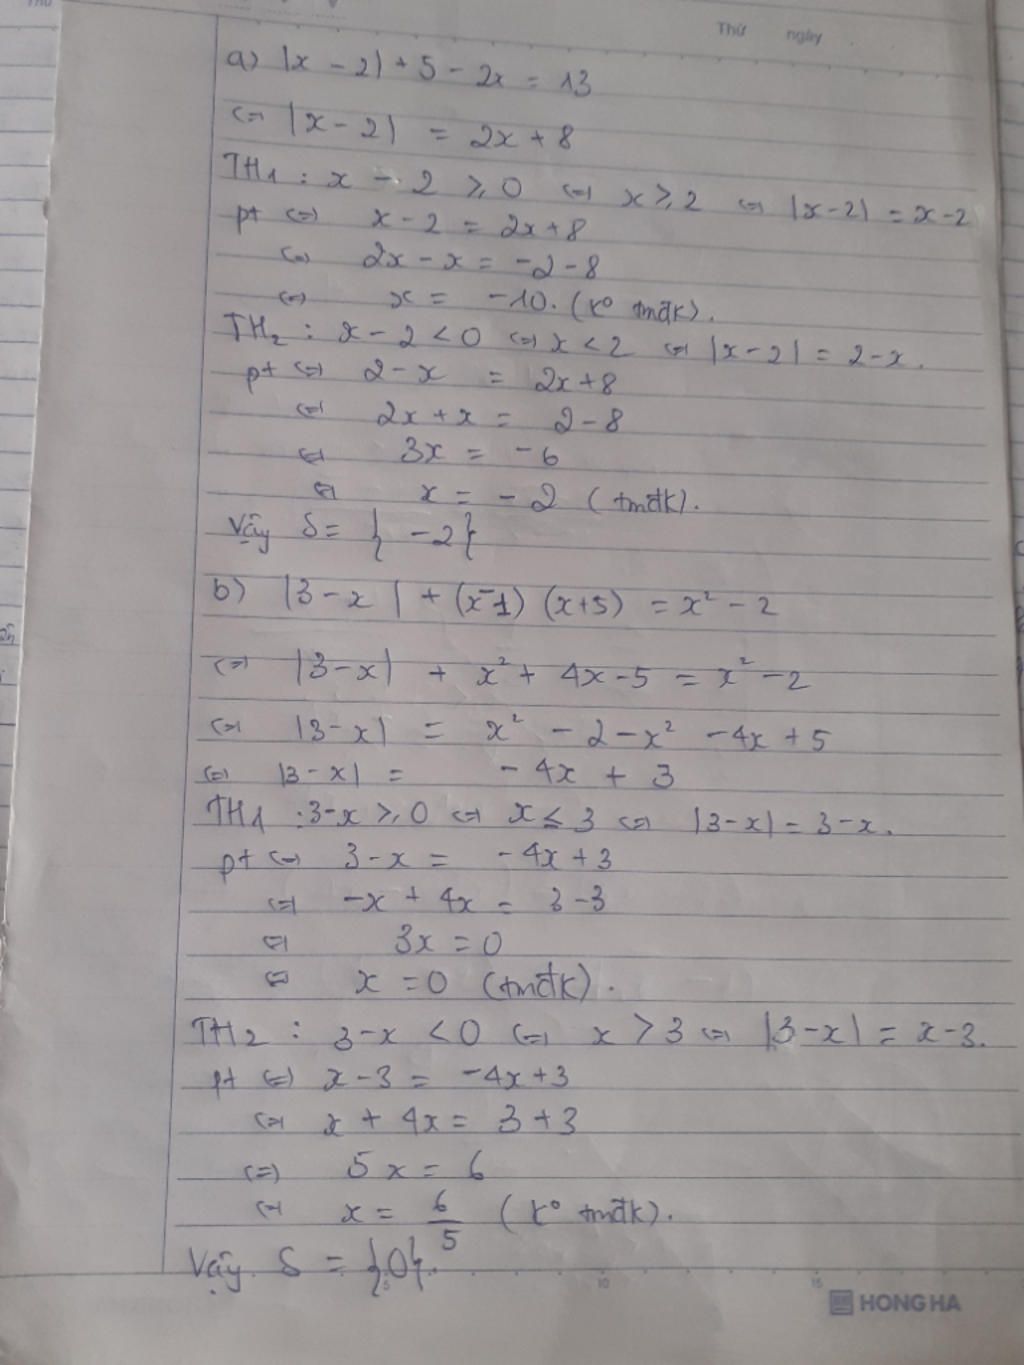 Thứ ngày
a) |x - 2| + 5 - 2x = 13
<=> |x - 2| = 2x + 8
TH1 : x - 2 ≥ 0 <=> x ≥ 2 <=> |x-2| = x-2
pt <=> x - 2 = 2x + 8
<=> 2x - x = -2 - 8
<=> x = -10. (k° tmđk).
TH2 : x - 2 < 0 <=> x < 2 <=> |x - 2| = 2 - x.
pt <=> 2 - x = 2x + 8
<=> 2x + x = 2 - 8
<=> 3x = -6
<=> x = -2 (tmđk).
Vậy S = { -2}
b) |3 - x | + (x-1) (x+5) = x² - 2
<=> |3 - x| + x² + 4x - 5 = x² - 2
<=> |3 - x| = x² - 2 - x² - 4x + 5
<=> |3 - x| = - 4x + 3
TH1 : 3-x ≥ 0 <=> x ≤ 3 <=> |3 - x| = 3 - x.
pt <=> 3 - x = -4x + 3
<=> -x + 4x = 3 - 3
<=> 3x = 0
<=> x = 0 (tmđk).
TH2 : 3 - x < 0 <=> x > 3 <=> |3 - x| = x - 3.
pt <=> x - 3 = -4x + 3
<=> x + 4x = 3 + 3
<=> 5x = 6
<=> x = 6/5 (k° tmđk).
Vậy S = {0}.
5 10 15
HONG HA